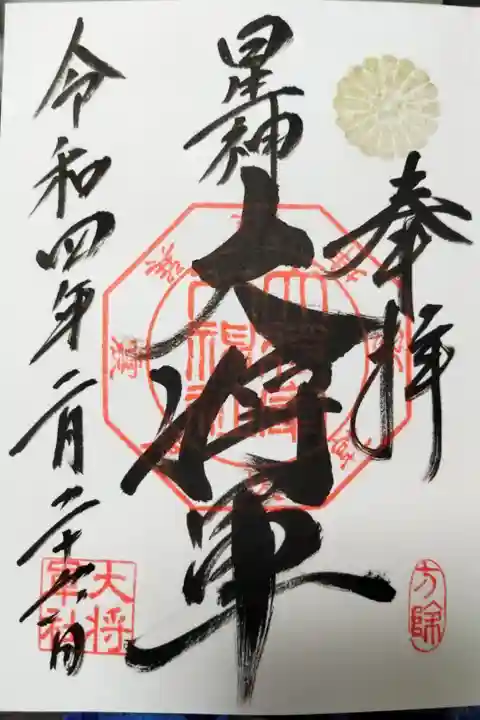 奉拝
方除
星神
大将軍
令和四年二月二十六日
大将
軍社